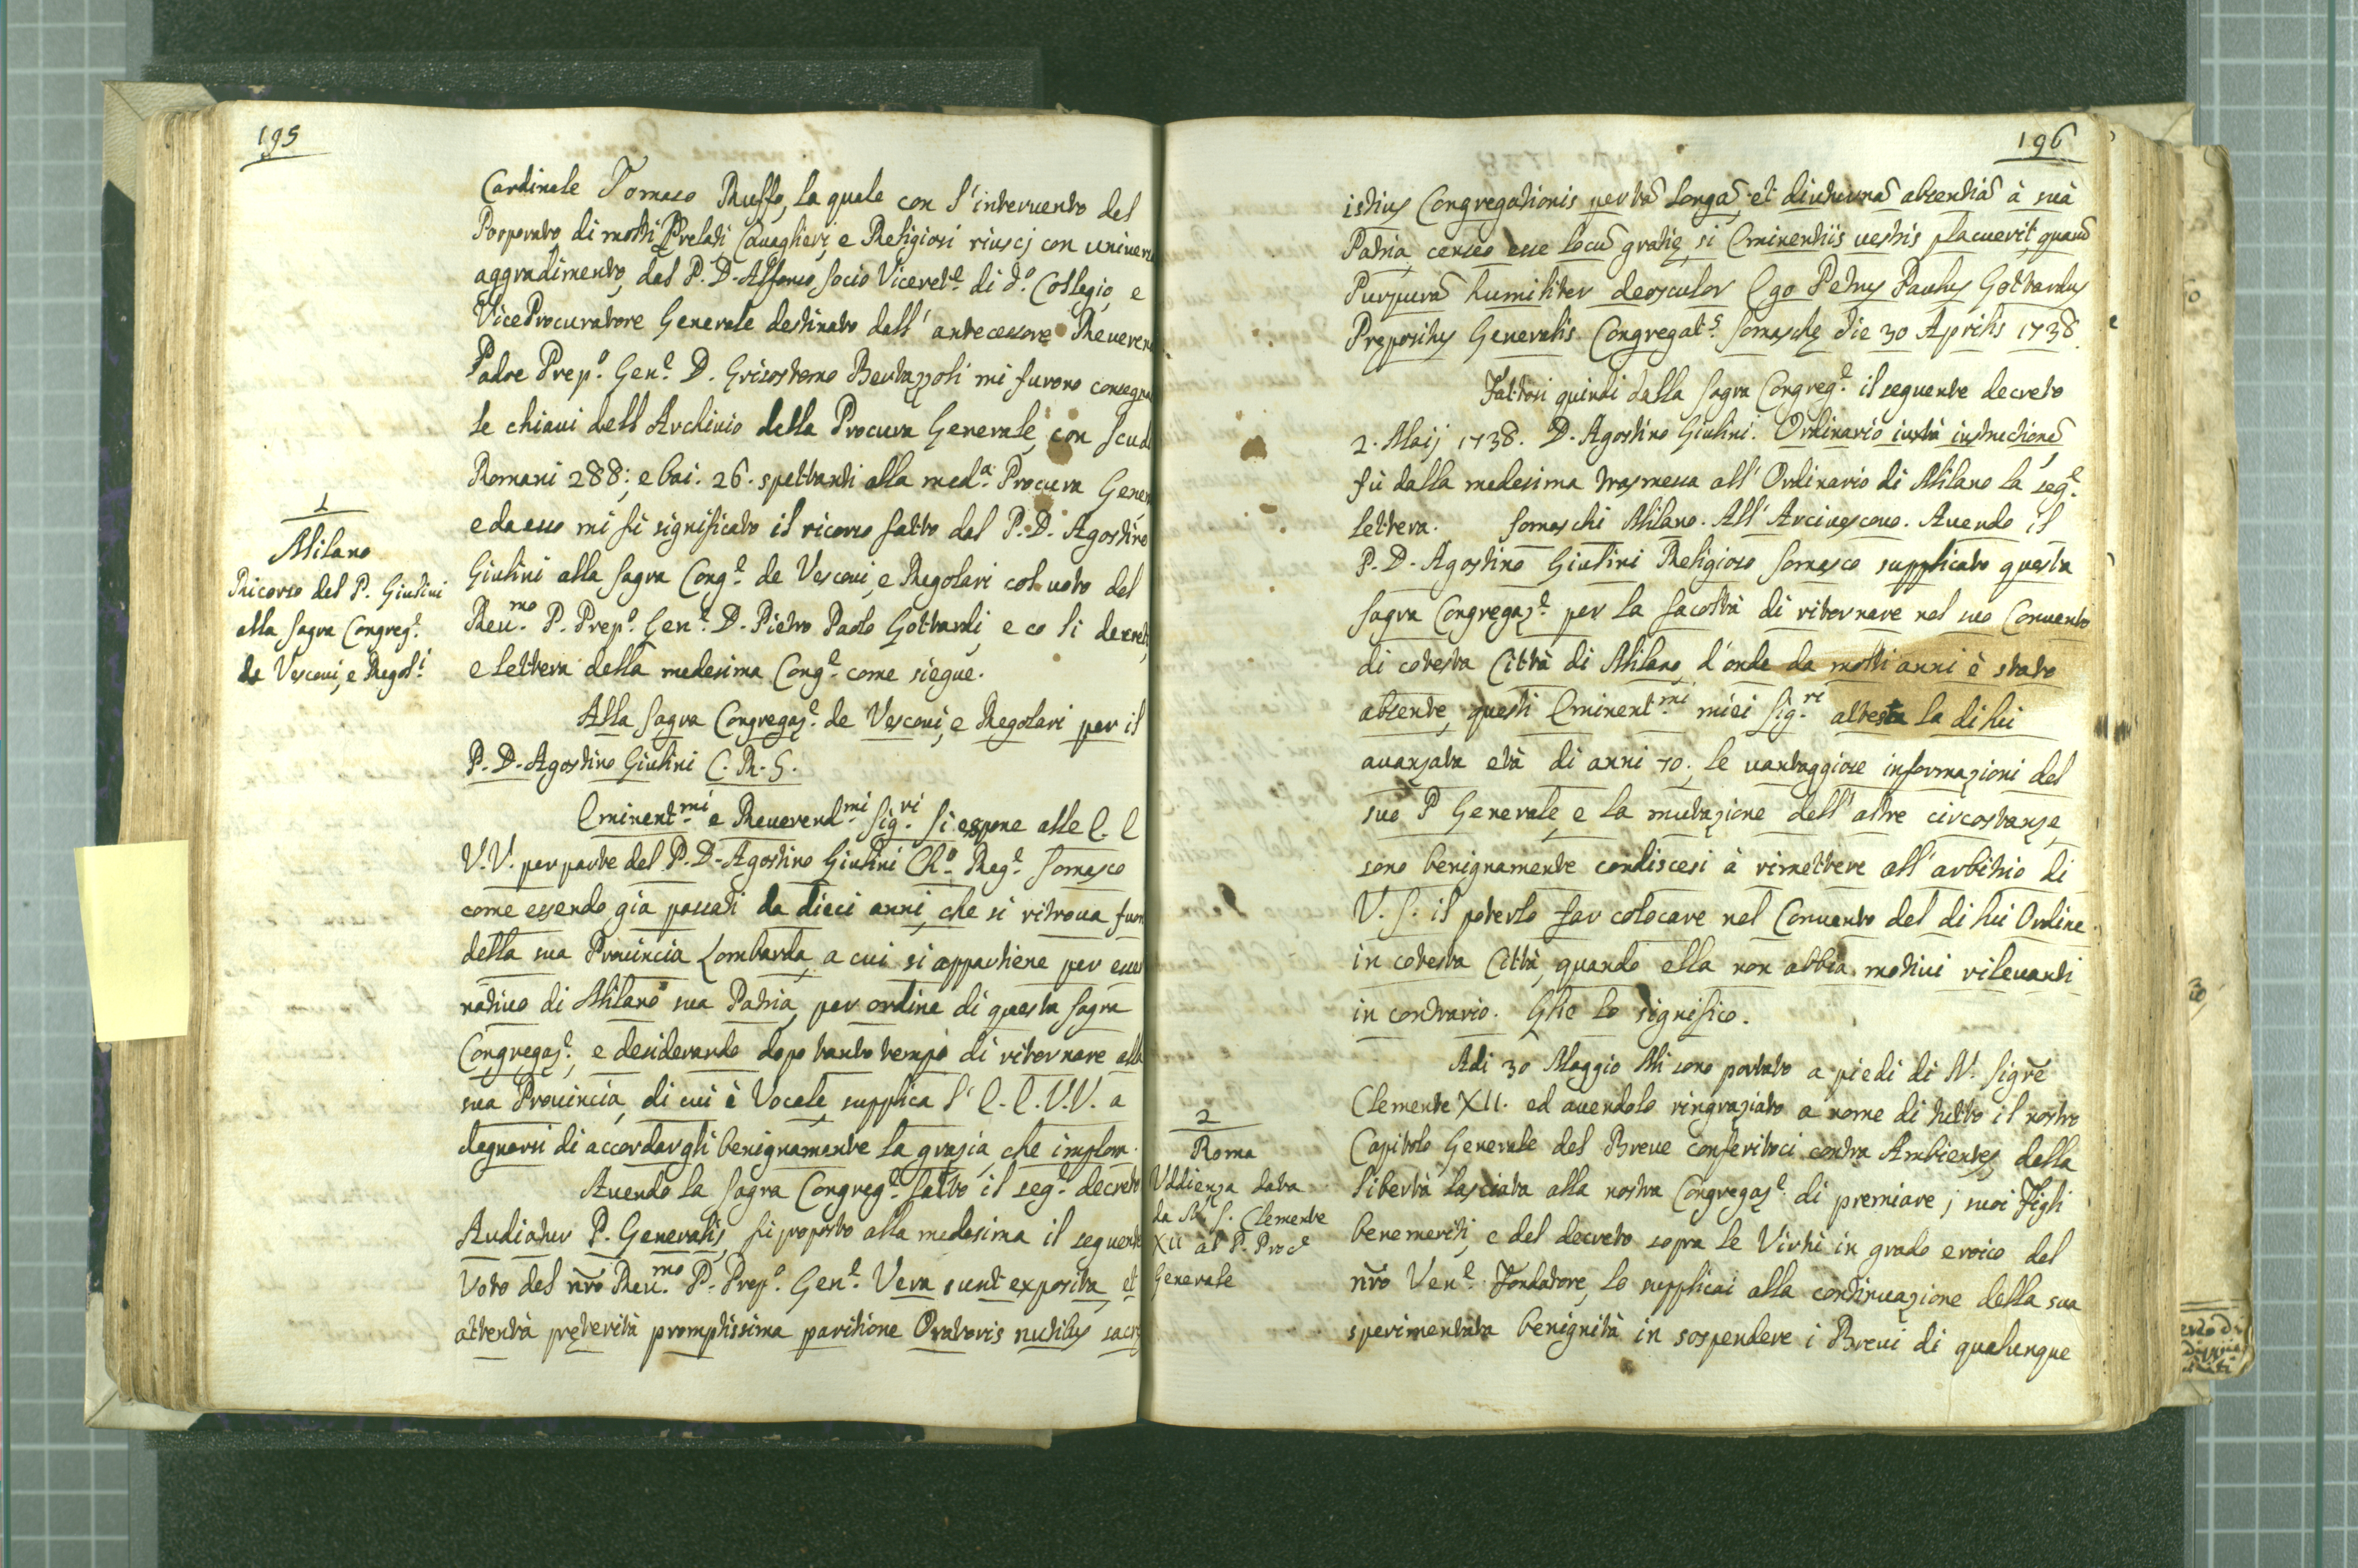 195
Cardinale Tomaso Ruffo, la quale con l'interuento del
Porporato di molti Prelati Cauaglieri, e Religiosi riuscj con uniuers
aggradimento, dal P. D. Alfonso Socio Viceret.e di d.o Collegio, e
ViceProcuratore Generale destinato dall' antecessore Reueren
Padre Prep.o Gen.e D. Grisostomo Bertazzoli mi furono consegna
le chiaui dell Archiuio della Procura Generale, con Scudi
Romani 288; e bai. 26. spettanti alla med.a Procura Gener
e da esso mi fù significato il ricorso fatto dal P. D. Agostino
1
Milano
Ricorso del P. Giulini
alla Sagra Congreg.e
de Vescoui, e Regol.i
Giulini alla Sagra Cong.e de Vescoui, e Regolari col uoto del
Reu.mo P. Prep.o Gen.e D. Pietro Paolo Gottardi, e co li decreti,
e lettera della medesima Cong.e come siegue.
Alla Sagra Congregaz.e de Vescoui, e Regolari per il
P. D. Agostino Giulini C. R. S.
Eminent.mi e Reuerend.mi Sig.ri Si espone alle E. E
V.V. per parte del P. D. Agostino Giulini Ch.o Reg.e Somasco
come essendo già passati da dieci anni, che si ritroua fuori
della sua Prouincia Lombarda, a cui si appartiene per esser
natiuo di Milano sua Patria, per ordine di questa Sagra
Congregaz.e, e desiderando dopo tanto tempo di ritornare alla
sua Prouincia, di cui è Vocale, supplica l' E. E. V.V. a
degnarsi di accordargli benignamente la grazia, che implora.
Auendo la Sagra Congreg.e fatto il seg.e decreto
Audiatur P. Generalis, fù proposto alla medesima il seguente
Voto del nro Reu.mo P. Prep.o Gen.e Vera sunt exposita, et
attentà pręterità promptissima paritione Oratoris nutibus sacrę
196
istius Congregationis per tã longã, et diuturnã absentiã à suà
Patria, censeo esse locũ gratię, si Eminentiis uestris placuerit, quarũ
Purpurã humiliter deosculor Ego Petrus Paulus Gottardus
Prepositus Generalis Congregat.s Somaschę die 30 Aprilis 1738.
Fattosi quindi dalla Sagra Congreg.e il seguente decreto
2. Maij 1738. D. Agostino Giulini. Ordinario iuxtà instructionẽ,
fù dalla medesima trasmessa all' Ordinario di Milano la seg.e
lettera. Somaschi Milano. All' Arciuescouo. Auendo il
P. D. Agostino Giulini Religioso Somasco supplicato questa
Sagra Congregaz.e per la facoltà di ritornare nel suo Conuento
di cotesta Città di Milano, d'onde da molti anni è stato
absente, questi Eminent.mi miei Sig.ri attesta la di lui
auanzata età di anni 70, le uantaggiose informazioni del
suo P Generale, e la mutazione dell' altre circostanze,
sono benignamente condiscesi à rimettere all' arbitrio di
V. S. il poterlo far colocare nel Conuento del di lui Ordine
in cotesta Città, quando ella non abbia motiui rileuanti
in contrario. Glie lo significo.
Adi 30 Maggio Mi sono portato a piedi di N. Sigre
2
Roma
Vddienza data
da N. S. Clemente
XII al P. Proc.e
Generale
Clemente XII. ed auendolo ringraziato a nome di tutto il nostro
Capitolo Generale del Breue conferitoci contra Ambientes, della
libertà lasciata alla nostra Congregaz.e di premiare j suoi Figli
benemeriti, e del decreto sopra le Virtù in grado eroico del
nro Ven.e Fondatore, lo supplicai alla continuazione della sua
sperimentata benignità in sospendere i Breui di qualunque